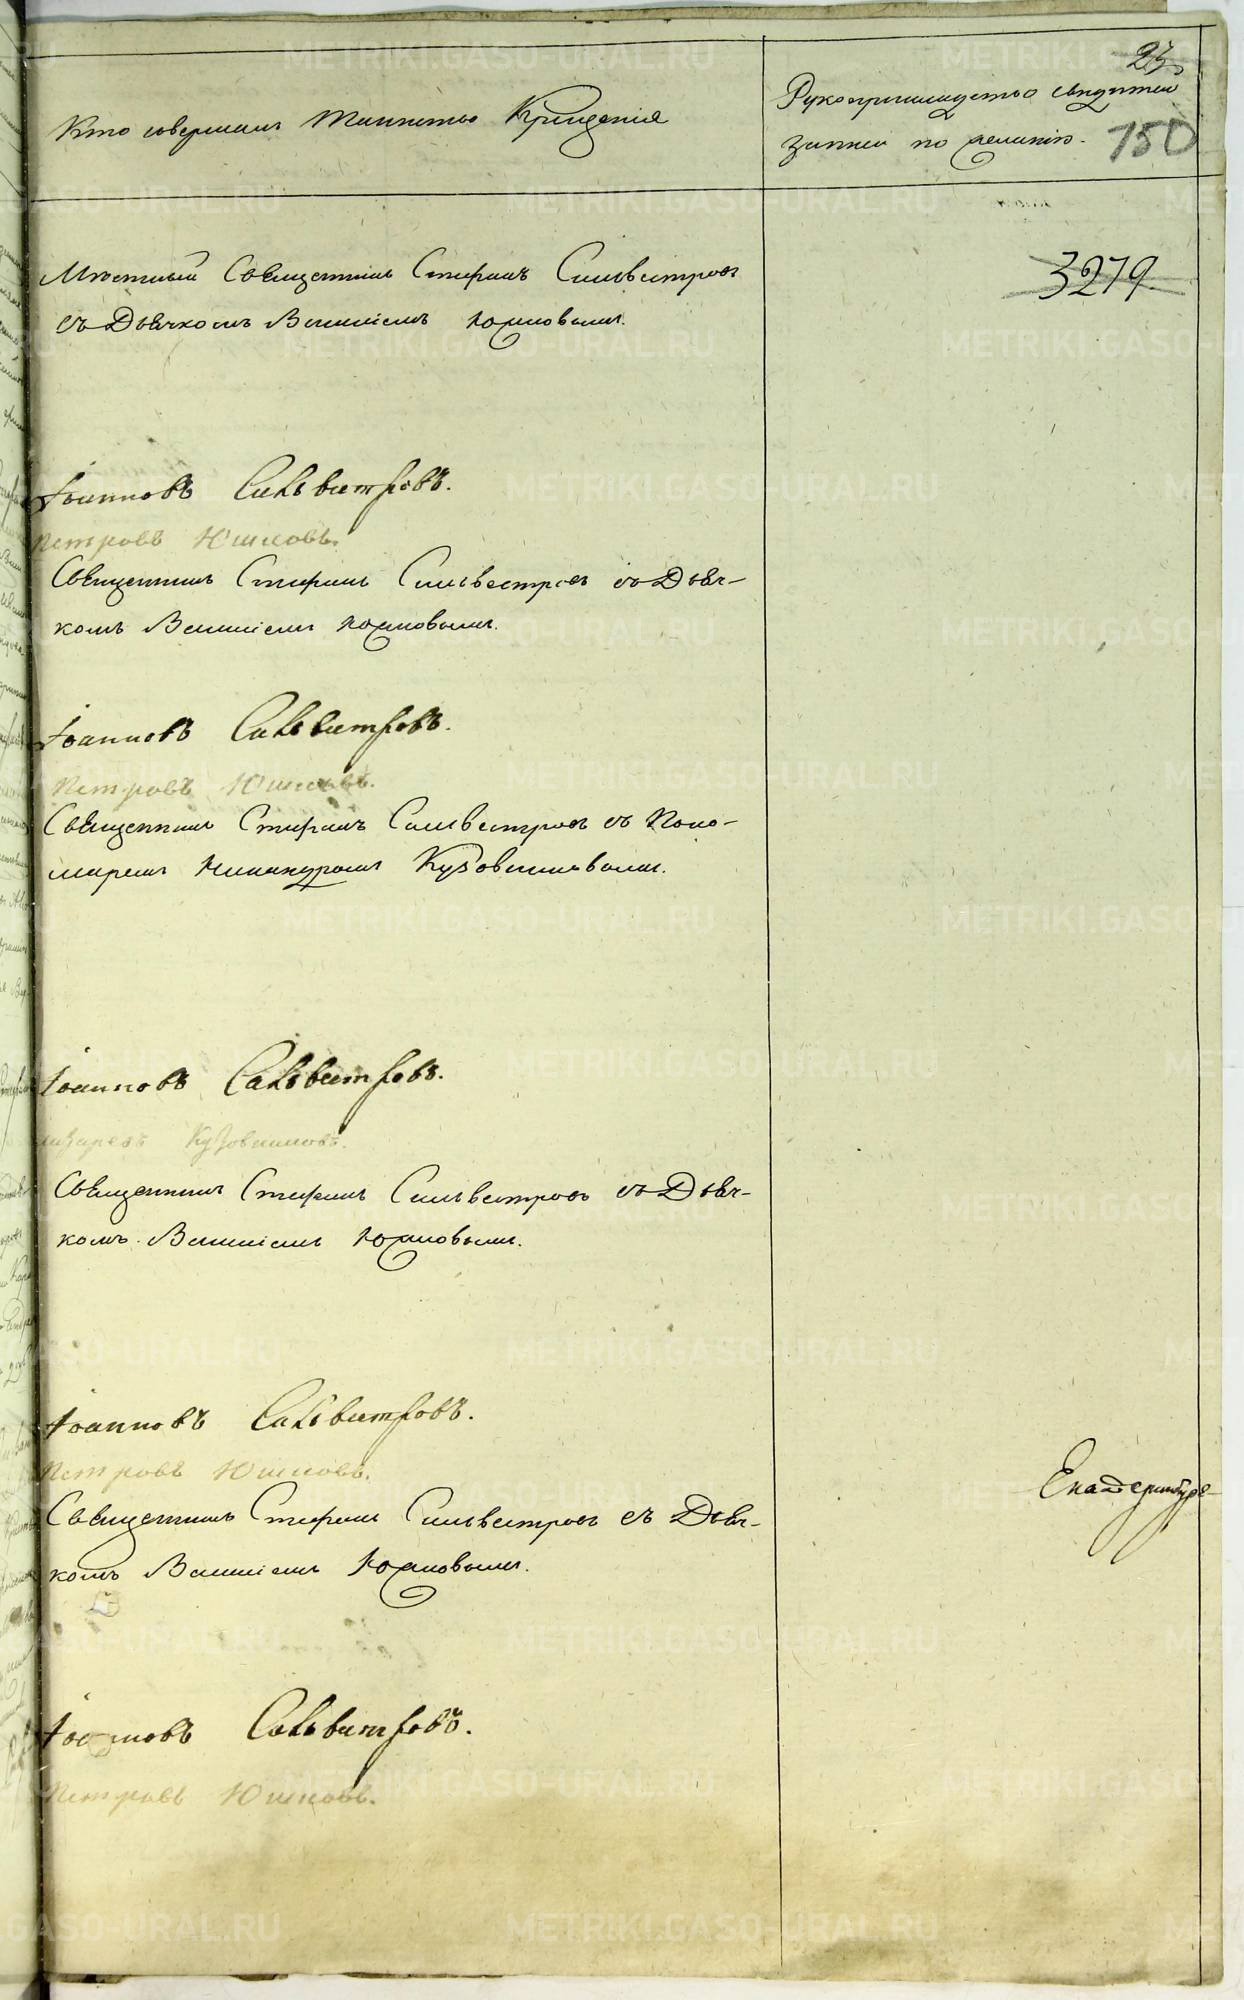 23
Кто совершалъ таинство Крещенiя
Рукоприкладство свидѣтелей
записи по желанiю.
150
Мѣстный Священникъ Стефанъ Сильвестровъ
съ Дьячкомъ Васильемъ Юшковымъ.
3279.
Iоанновъ Сильвестровъ.
Петровъ Юшковъ.
Священникъ Стефанъ Сильвестровъ съ Дьяч-
комъ Васильемъ Юшковымъ.
Iоанновъ Сильвестровъ.
Петровъ Юшковъ.
Священникъ Стефанъ Сильвестровъ съ Поно-
маремъ Никандромъ Кузовниковымъ.
Iоанновъ Сильвестровъ.
Кузовниковъ.
Священникъ Стефанъ Сильвестровъ съ Дьяч-
комъ Васильемъ Юшковымъ.
Iоанновъ Сильвестровъ.
Петровъ Юшковъ.
Екатеринбург-
Священникъ Стефанъ Сильвестровъ съ Дьяч-
комъ Васильемъ Юшковымъ.
Iоанновъ Сильвестровъ.
Петровъ Юшковъ.
METRIKI.GASO-URAL.RU